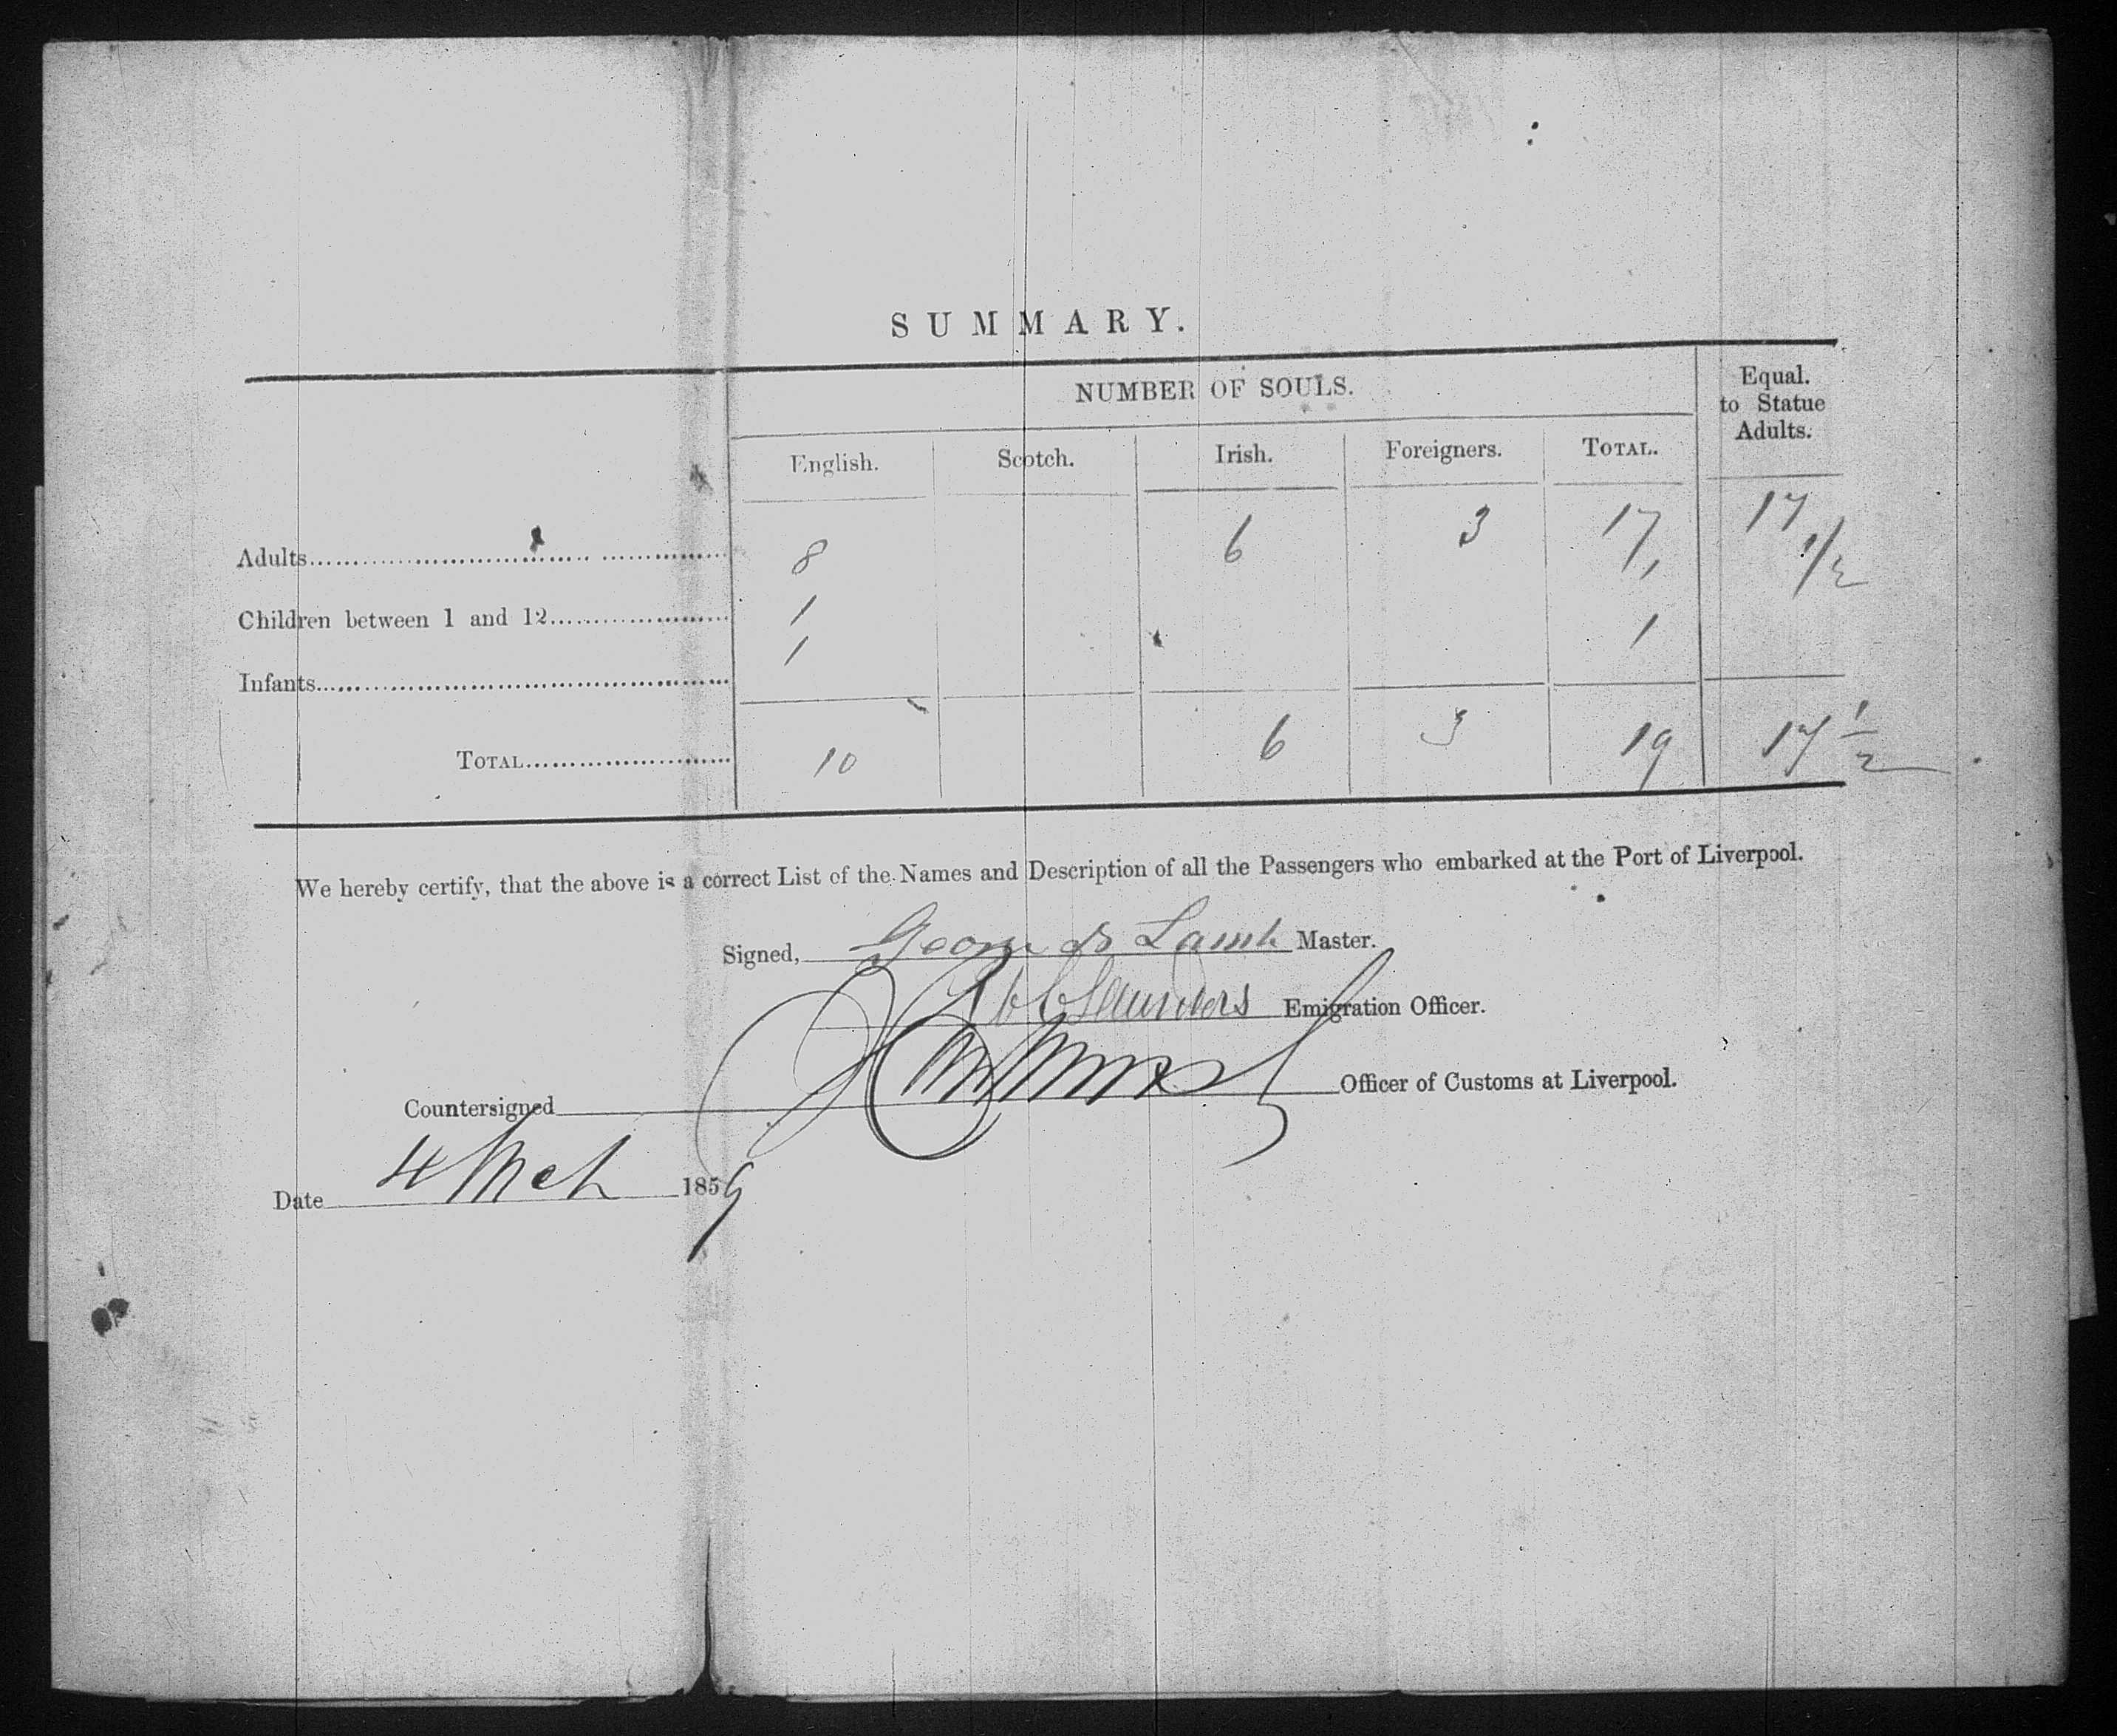 SUMMARY.
NUMBER OF SOULS.
Equal.
to Statue
Adults.
English. Scotch. Irish. Foreigners. TOTAL.
Adults 8 6 3 17 17
Children between 1 and 12 1 1 1/2
Infants 1 1
TOTAL 10 6 3 19 17 1/2
We hereby certify, that the above is a correct List of the Names and Description of all the Passengers who embarked at the Port of Liverpool.
Signed, Lamb Master.
Saunders Emigration Officer.
Countersigned Officer of Customs at Liverpool.
Date 4 Mch 1859